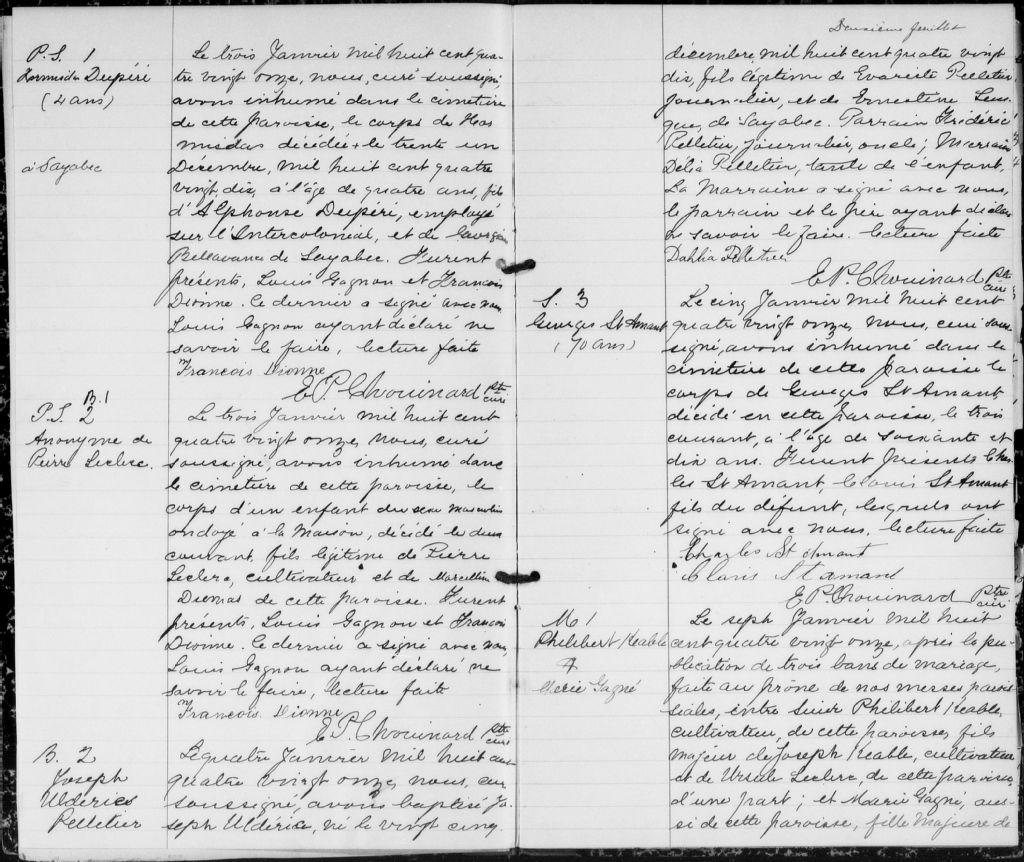 P. S. 1
Zormidas Dupéré
(4 ans)
à Sayabec
Le trois Janvier mil huit cent qua-
tre vingt onze, nous, curé soussigné,
avons inhumé dans le cimetière
de cette paroisse, le corps de Hor
misdas décédé le trente un
Décembre, mil huit cent quatre
vingt dix, à l'âge de quatre ans, fils
d'Alphonse Dupéré, employé
sur l'Intercolonial, et de
Bellavance de Sayabec. Furent
présents, Louis Gagnon et François
Dionne. le dernier a signé avec nous,
Louis Gagnon ayant déclaré ne
savoir le faire, lecture faite
François Dionne
E. P. Chouinard Ptre curé
B. 1
P. S. 2
Anonyme de
Pierre Leclerc.
Le trois Janvier mil huit cent
quatre vingt onze, nous, curé
soussigné, avons inhumé dans
le cimetière de cette paroisse, le
corps d'un enfant du sexe masculin
ondoyé à la maison, décédé le deux
courant, fils légitime de Pierre
Leclerc, cultivateur et de Marcelline
Dumas de cette paroisse. Furent
présents, Louis Gagnon et François
Dionne. le dernier a signé avec nous,
Louis Gagnon ayant déclaré ne
savoir le faire, lecture faite
François Dionne
E. P. Chouinard Ptre curé
B. 2
Joseph
Ulderics
Pelletier
Le quatre Janvier mil huit cent
quatre vingt onze, nous, curé
soussigné, avons baptisé Jo-
seph Uldéric, né le vingt cinq
Deuxième feuillet
décembre, mil huit cent quatre vingt
dix, fils légitime de Evariste Pelletier
journalier, et de Ernestine
de Sayabec. Parrain Frédéric
Pelletier, journalier, oncle; Marraine
Délia Pelletier, tante de l'enfant,
La Marraine a signé avec nous,
le parrain et le père ayant déclaré
ne savoir le faire. lecture faite
Dahlia Pelletier
E. P. Chouinard Ptre curé
S. 3
Georges St Amant
(70 ans)
Le cinq Janvier mil huit cent
quatre vingt onze, nous, curé sous-
signé, avons inhumé dans le
cimetière de cette paroisse le
corps de Georges St Amant
décédé en cette paroisse, le trois
courant, à l'âge de soixante et
dix ans. Furent présents Char
les St Amant, Clovis St Amant
fils du défunt, lesquels ont
signé avec nous, lecture faite
Charles St Amant
Clovis St amand
E. P. Chouinard Ptre curé
M 1
Philibert Keable
&
Marie Gagné
Le sept Janvier mil huit
cent quatre vingt onze, après la pu-
blication de trois bans de mariage,
faite au prône de nos messes parois
siales, entre Sieur Philibert Keable,
cultivateur, de cette paroisse, fils
majeur de Joseph Keable, cultivateur
et de Ursule Leclerc, de cette paroisse,
d'une part; et Marie Gagné, aus-
si de cette paroisse, fille majeure de